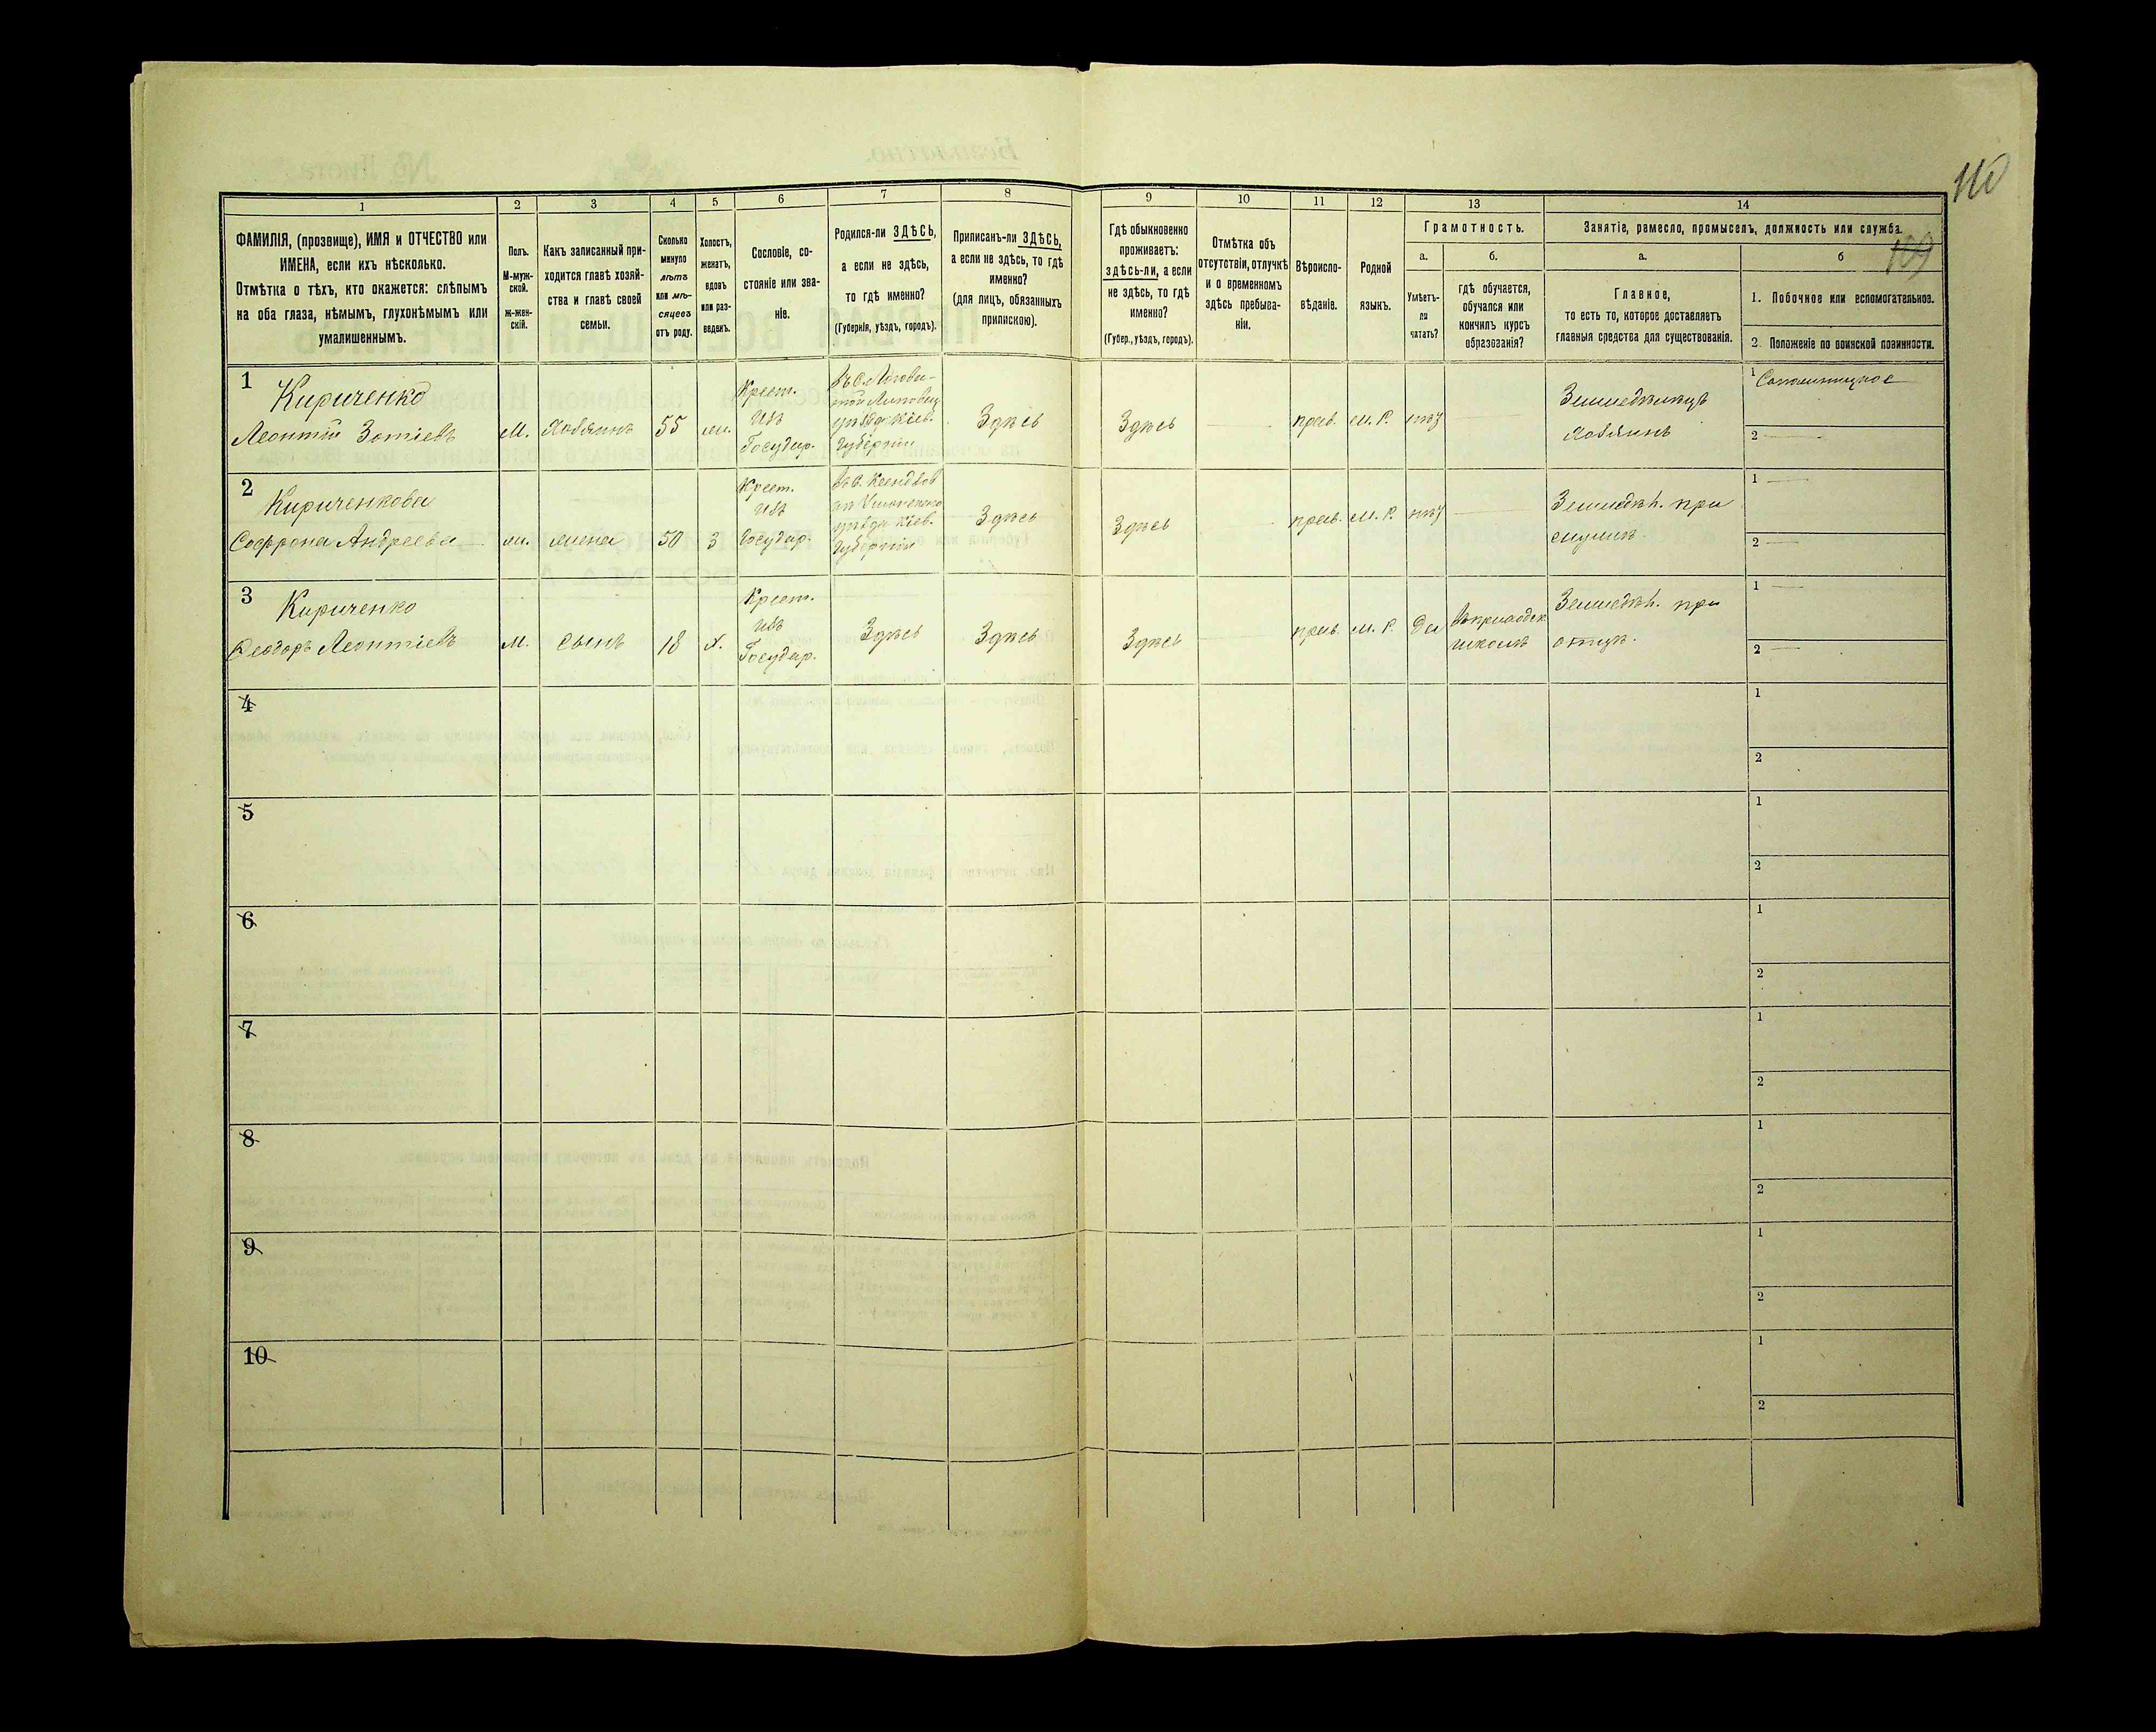 110
109
1 2 3 4 5 6 7 8 9 10 11 12 13 14
ФАМИЛІЯ, (прозвище), ИМЯ и ОТЧЕСТВО или
ИМЕНА, если ихъ нѣсколько.
Отмѣтка о тѣхъ, кто окажется: слѣпымъ
на оба глаза, нѣмымъ, глухонѣмымъ или
умалишеннымъ.
Полъ.
М-муж-
ской.
ж-жен-
скій.
Какъ записанный при-
ходится главѣ хозяй-
ства и главѣ своей
семьи.
Сколько
минуло
лѣтъ
или мѣ-
сяцевъ
отъ роду.
Холостъ,
женатъ,
вдовъ
или раз-
веденъ.
Сословіе, со-
стояніе или зва-
ніе.
Родился-ли ЗДѢСЬ,
а если не здѣсь,
то гдѣ именно?
(Губернія, уѣздъ, городъ).
Приписанъ-ли ЗДѢСЬ,
а если не здѣсь, то гдѣ
именно?
(для лицъ, обязанныхъ
припискою).
Гдѣ обыкновенно
проживаетъ:
здѣсь-ли, а если
не здѣсь, то гдѣ
именно?
(Губер., уѣздъ, городъ).
Отмѣтка объ
отсутствіи, отлучкѣ
и о временномъ
здѣсь пребыва-
ніи.
Вѣроиспо-
вѣданіе.
Родной
языкъ.
Грамотность.
а.
Умѣетъ-
ли
читать?
б.
гдѣ обучается,
обучался или
кончилъ курсъ
образованія?
Занятіе, ремесло, промыселъ, должность или служба.
а.
Главное,
то есть то, которое доставляетъ
главныя средства для существованія.
б
1. Побочное или вспомогательное.
2. Положеніе по воинской повинности.
1
Кириченко
Леонтій Зотіевъ
м.
Хозяинъ
55
ж.
Крест.
изъ
Государ.
уѣзда Кіев.
Губерніи
Здѣсь
Здѣсь
прав.
м. р.
нѣт
Земледѣлецъ
Хозяинъ
1
2
2
Кириченкова
Софрона Андреева
ж.
жена
50
З
Крест.
изъ
Государ.
уѣзда Кіев.
Губерніи
Здѣсь
Здѣсь
прав.
м. р.
нѣт
Земледѣл. при
мужѣ.
1
2
3
Кириченко
Ѳеодоръ Леонтіевъ
м.
сынъ
18
х.
Крест.
изъ
Государ.
Здѣсь
Здѣсь
Здѣсь
прав.
м. р.
Да
Въ приходск.
школѣ
Земледѣл. при
отцѣ.
1
2
4
1
2
5
1
2
6
1
2
7
1
2
8
1
2
9
1
2
10
1
2